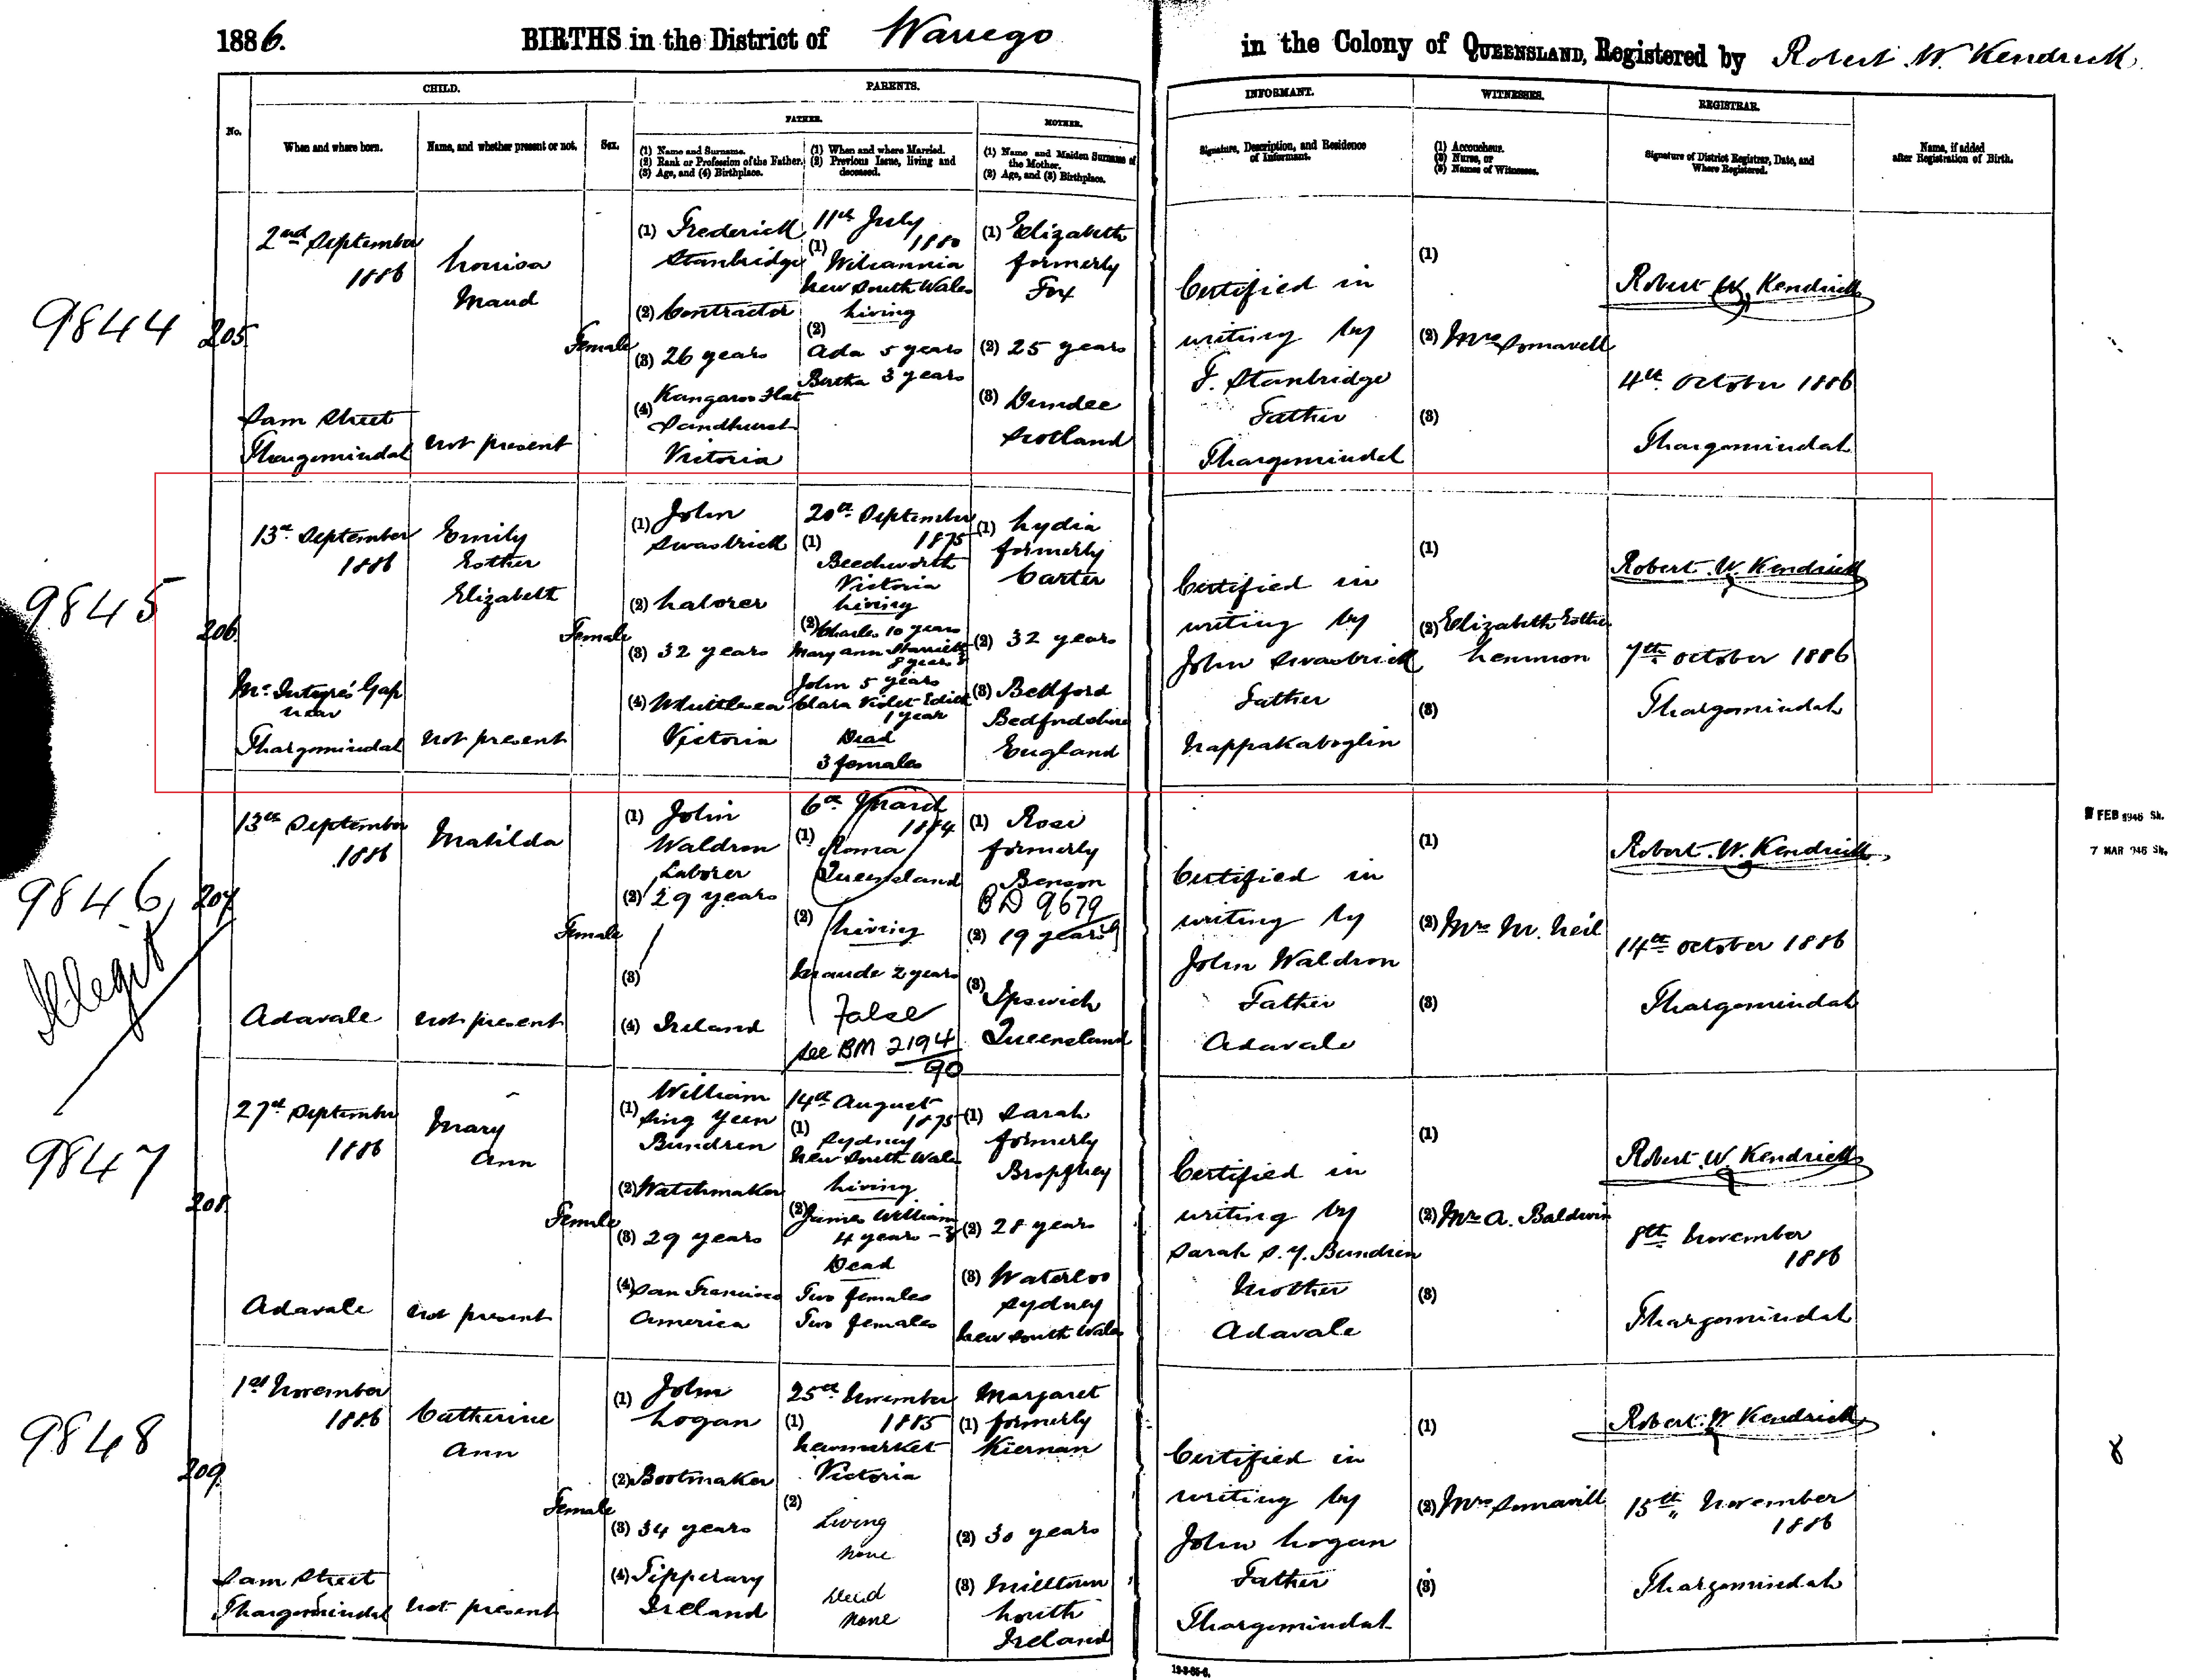 1886.
BIRTHS in the District of Warrego
in the Colony of QUEENSLAND, Registered by Robert W. Kendrick
CHILD.
PARENTS.
INFORMANT.
WITNESSES.
REGISTRAR.
FATHER.
MOTHER.
No.
When and where born.
Name, and whether present or not.
Sex.
(1) Name and Surname.
(2) Rank or Profession of the Father.
(3) Age, and (4) Birthplace.
(1) When and where Married.
(2) Previous Issue, living and
deceased.
(1) Name and Maiden Surname of
the Mother.
(2) Age, and (3) Birthplace.
Signature, Description, and Residence
of Informant.
(1) Accoucheur.
(2) Nurse, or
(3) Names of Witnesses.
Signature of District Registrar, Date, and
Where Registered.
Name, if added
after Registration of Birth.
9844
205
2nd September
1886
Dam Street
Thargomindah
Louisa
Maud
not present
Female
(1) Frederick
Stanbridge
(2) Contractor
(3) 26 years
(4) Kangaroo Flat
Sandhurst
Victoria
11th July
1880
(1) Wilcannia
New South Wales
Living
(2)
Ada 5 years
Bertha 3 years
(1) Elizabeth
formerly
Fox
(2) 25 years
(3) Dundee
Scotland
Certified in
writing by
F. Stanbridge
Father
Thargomindah
(1)
(2) Mrs
(3)
Robert W. Kendrick
4th October 1886
Thargomindah
9845
206
13th September
1886
McIntyre's Gap
near
Thargomindah
Emily
Esther
Elizabeth
not present
Female
(1) John
Swasbrick
(2) Laborer
(3) 32 years
(4) Whittlesea
Victoria
20th September
(1) 1875
Beechworth
Victoria
Living
(2) Charles 10 years
Mary Ann Harriett
8 years
John 5 years
Clara Violet Edith
1 year
Dead
3 females
(1) Lydia
formerly
Carter
(2) 32 years
(3) Bedford
Bedfordshire
England
Certified in
writing by
John Swasbrick
Father
(1)
(2) Elizabeth Esther
Lemmon
(3)
Robert W. Kendrick
7th October 1886
Thargomindah
9846
Illegit
207
13th September
1886
Adavale
Matilda
not present
Female
(1) John
Waldron
Laborer
(2) 29 years
(3)
(4) Ireland
6th March
(1) 1884
Roma
Queensland
(2) Living
Maude 2 years
False
See BM 2194
90
(1) Rose
formerly
Benson
BD 9679
(2) 19 years
(3) Ipswich
Queensland
Certified in
writing by
John Waldron
Father
Adavale
(1)
(2) Mrs M. Neil
(3)
Robert W. Kendrick
14th October 1886
Thargomindah
FEB 1946 Sh.
7 MAR 946 Sh.
9847
208
27th September
1886
Adavale
Mary
Ann
not present
Female
(1) William
Sing Yeen
Bundren
(2) Watchmaker
(3) 29 years
(4) San Francisco
America
14th August
(1) 1875
Sydney
New South Wales
Living
(2) James William
4 years
Dead
Two females
Two females
(1) Sarah
formerly
(2) 28 years
(3) Waterloo
Sydney
New South Wales
Certified in
writing by
Sarah S. Y. Bundren
Mother
Adavale
(1)
(2) Mrs A. Baldwin
(3)
Robert W. Kendrick
8th November
1886
Thargomindah
9848
209
1st November
1886
Dam Street
Thargomindah
Catherine
Ann
not present
Female
(1) John
Logan
(2) Bootmaker
(3) 34 years
(4) Tipperary
Ireland
25th November
(1) 1885
Newmarket
Victoria
(2)
Living
None
Dead
None
Margaret
(1) formerly
Kiernan
(2) 30 years
(3) Milltown
Louth
Ireland
Certified in
writing by
John Logan
Father
Thargomindah
(1)
(2) Mrs
(3)
Robert W. Kendrick
15th November
1886
Thargomindah
8